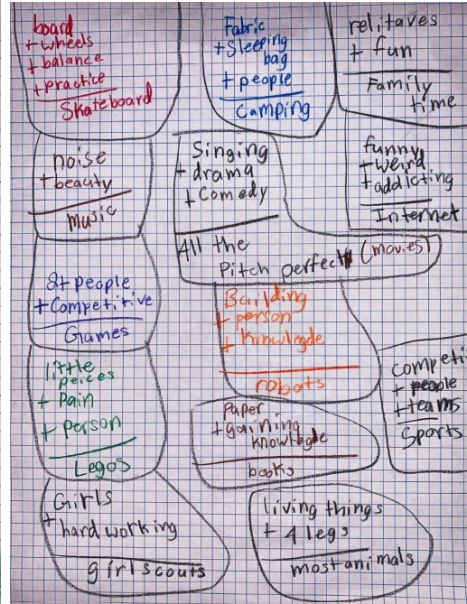 board
+ wheels
+ balance
+ practice
Skateboard
Fabric
+ Sleeping
bag
+ people
Camping
relitaves
+ fun
Family
time
noise
+ beauty
music
Singing
+ drama
+ Comedy
All the
Pitch perfect (movies)
funny
+ weird
+ addicting
Internet
2+ people
+ Competitive
Games
Building
+ person
+ Knowlegde
robots
little
peices
+ Pain
+ person
Legos
Paper
+ gaining
knowlegde
books
competi
+ people
+ teams
Sports
Girls
+ hard working
girl scouts
living things
+ 4 legs
most animals